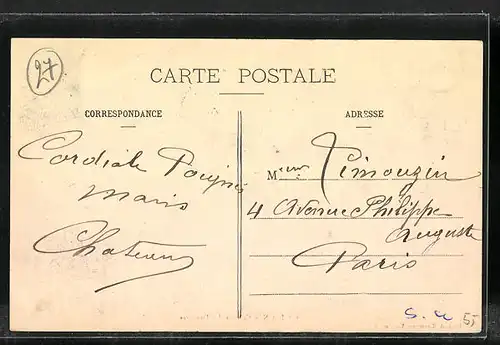 27
CARTE POSTALE
CORRESPONDANCE
Cordiale Poignée
mains
Chateau
ADRESSE
Mieur Limouzin
4 Avenue Philippe
Auguste
Paris
S. U 55